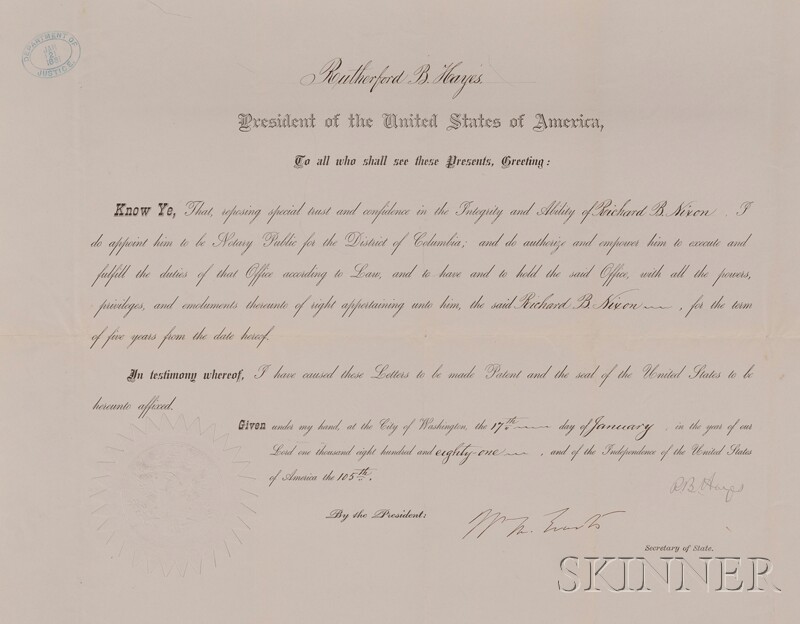 DEPARTMENT OF
JUSTICE
Rutherford B. Hayes
President of the United States of America,
To all who shall see these Presents, Greeting:
Know Ye, That, reposing special trust and confidence in the Integrity and Ability of Richard B. Nixon . I
do appoint him to be Notary Public for the District of Columbia; and do authorize and empower him to execute and
fulfill the duties of that Office according to Law, and to have and to hold the said Office, with all the powers,
privileges, and emoluments thereunto of right appertaining unto him, the said Richard B. Nixon , for the term
of five years from the date hereof.
In testimony whereof, I have caused these Letters to be made Patent and the seal of the United States to be
hereunto affixed.
Given under my hand, at the City of Washington, the 17th day of January , in the year of our
Lord one thousand eight hundred and eighty-one , and of the Independence of the United States
of America the 105th.
R.B. Hayes
By the President:
Wm M. Evarts
Secretary of State.
SKINNER